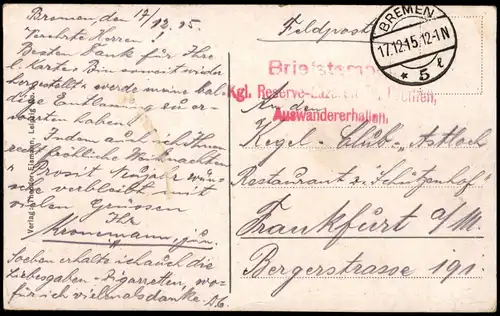 Bremen, den 17/12. 15.
Verehrte Herren!
Besten Dank für Ihre
l. Karte. Bin soweit wieder
hergestellt u. werde meine bal-
dige Entlassung zu er-
warten haben.
Indem auch ich Ihnen
recht fröhliche Weihnachten
Prosit Neujahr wün-
sche verbleibt mit
vielen Grüssen
Ihr
Kronemann, jun.
Soeben erhalte ich auch die
Liebesgaben - Zigaretten, wo-
für ich vielmals danke. D.O.
Verlag: Theodor Eismann, Leipzig No.
Feldpost
BREMEN
17.12.15. 12-1N
* 5 l
Briefstempel
Kgl. Reserve-Lazarett Bremen,
Auswandererhallen.
An den
Kegel-Club „Astloch
Restaurant z. Schützenhof
Frankfurt a/M.
Bergerstrasse 191.